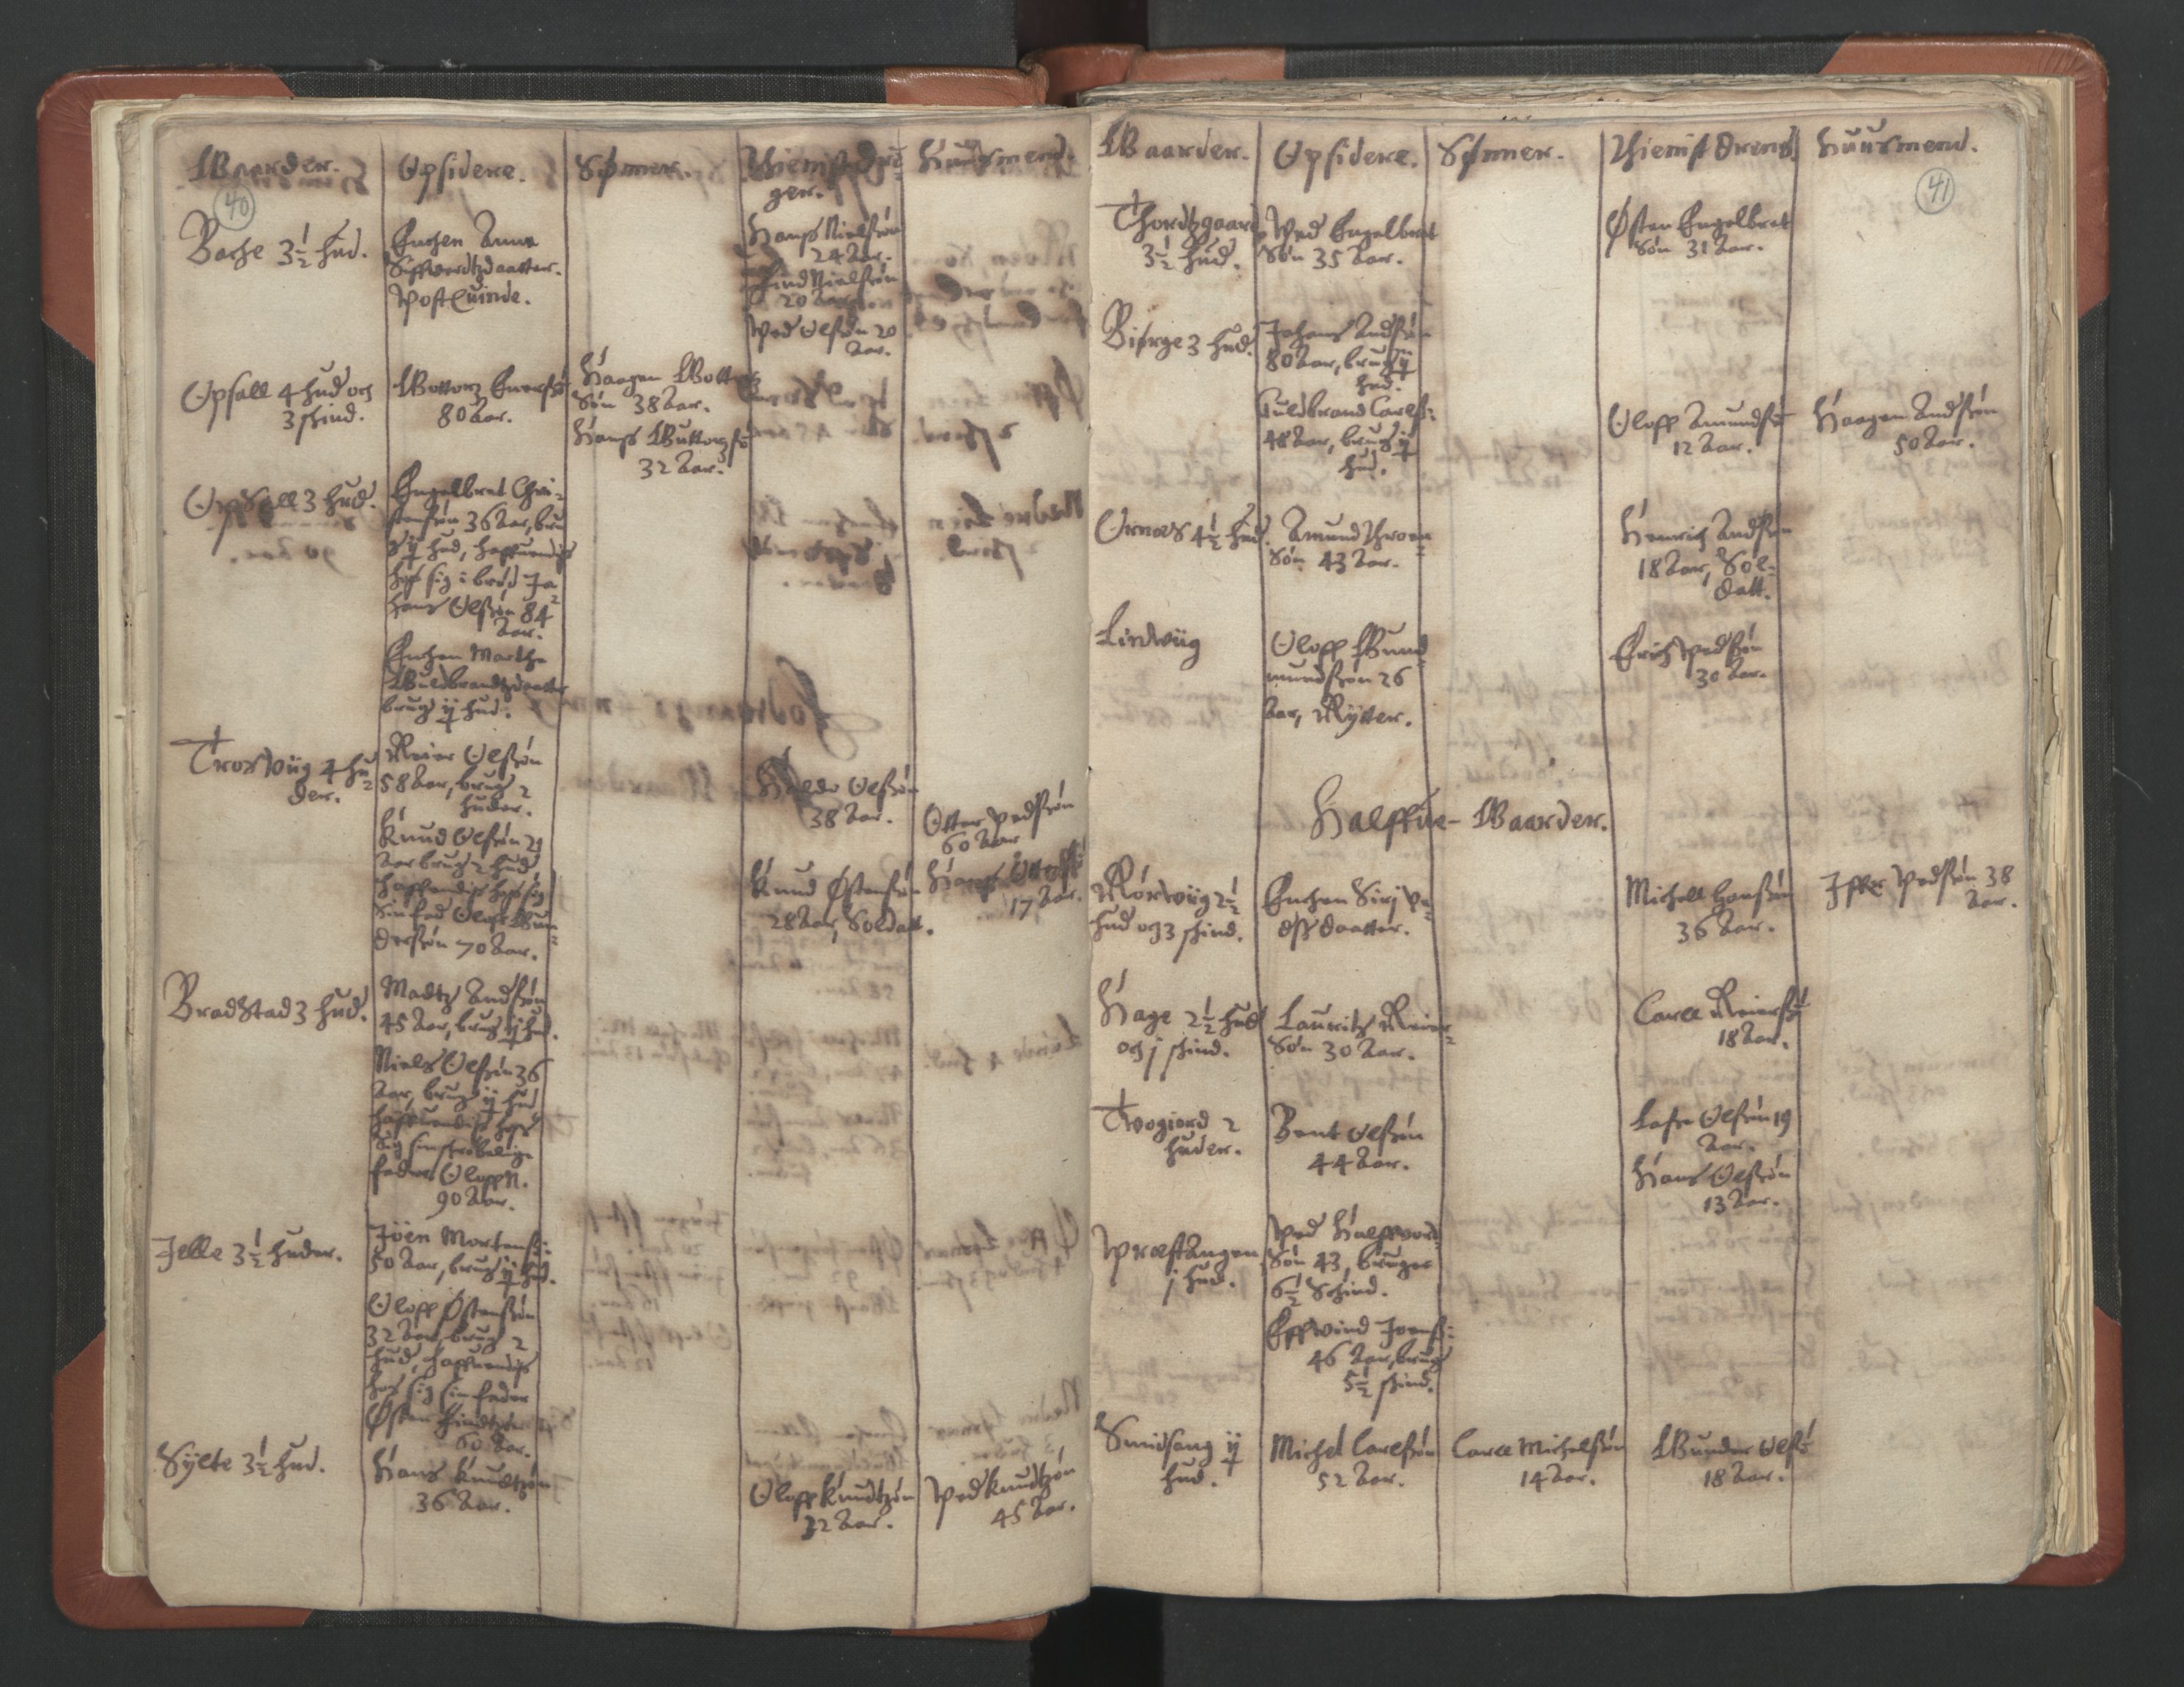 Gaarder.
Opsidere.
Sønner.
Thienistedren
ger.
Huusmend.
40
Bache 3½ hud.
Enchen Anna
Siffwerdtzdaatter.
Postquinde.
Hans Nielsøn
24 Aar.
Find Nielsøn
20 Aar.
Ped Olsøn 20
Aar.
Opsall 4 hud och
3 schind.
Guttorm
80 Aar.
Haagen
Søn 38 Aar.
Hans
32 Aar.
Opsall 3 hud.
Engelbret Chri-
stensøn 36 Aar, bru
hud, haffuendis
hos sig i brød Jo
hans Olsøn 84
Aar.
Enchen Marthe
Gulbrandtzdaatter
brug ij hud.
Troswiig 4 hu
der.
Reier Olsøn
58 Aar, brug 2
huder.
Knud Olsøn 29
Aar brug 2 hud
haffuendis hos sig
sin fad Oloff Gun
dersøn 70 Aar.
Olsøn
38 Aar.
Otter Pedsøn
60 Aar
Knud Østensøn
28 Aar, Soldatt.
Hans
17 Aar.
Bradstad 3 hud.
Madtz Andsøn
45 Aar, brug ij hud.
Niels Olsøn 36
Aar, brug ij hud
haffuendis hos
sig sin skrøbelige
fader Oloff N.
90 Aar.
Jelle 3½ huder.
Joen Mortens:
50 Aar, brug ij hud.
Oloff Østensøn
32 Aar, brug 2
hud, haffuendis
hos sig sin fader
Østen Findtzøn
60 Aar.
Sylte 3½ hud.
Hans Knudtzøn
36 Aar.
Oloff Knudtzøn
32 Aar.
Ped Knudtzøn
45 Aar.
Gaarder.
Opsidere.
Sønner.
Thienist Dreng.
Huusmend.
41
Thordtzgaard
3½ hud.
Ped Engelbret
Søn 35 Aar.
Østen Engelbret
Søn 31 Aar.
Biørge 3 hud.
Johans Andsøn
80 Aar, brug ij
hud.
Gulbrand Carls:
48 Aar, brug ij
hud.
Oloff Amundsø
12 Aar.
Haagen Andsøn
50 Aar.
Ornæs 4½ hud.
Amund Throen
Søn 43 Aar.
Henrich Andsø
18 Aar, Sol-
datt.
Lindwiig
Oloff Gund
mundsøn 26
Aar, Rytter.
Erich Pedsøn
30 Aar.
Halffue-Gaarder.
Rørwiig 2½
hud och 3 schind.
Enchen Siri Pe-
dss daatter.
Michell Hansøn
36 Aar.
Iffer Pedsøn 38
Aar.
Hage 2½ hud
och j schind.
Lauritz Reier
Søn 30 Aar.
Carll Reiersø
18 Aar.
Twogiord 2
huder.
Bent Olsøn
44 Aar.
Lasse Olsøn 19
Aar.
Hans Olsøn
13 Aar.
Præstangen
j hud.
Ped Halffuor
Søn 43, bruger
6½ Schind.
Effwind Joens:
46 Aar, brug
5½ schind.
Smidsang ij
hud.
Michel Carlsøn
52 Aar.
Carll Michelsøn
14 Aar.
Gunder Olsø
18 Aar.